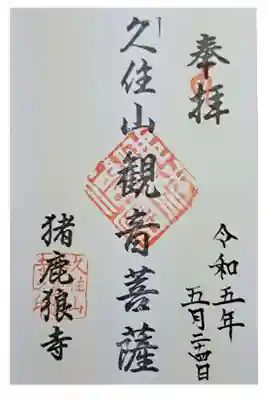 奉拝
久住山観音菩薩
猪鹿狼寺
令和五年
五月二十四日